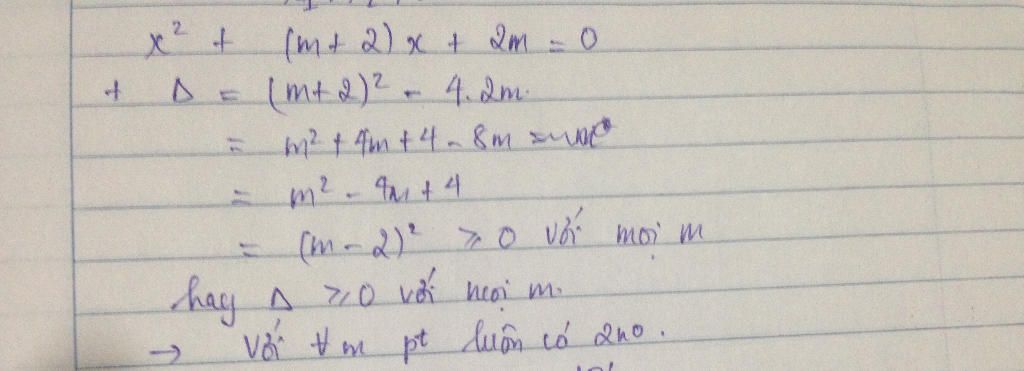 x² + (m+2)x + 2m = 0
+ Δ = (m+2)² - 4.2m.
= m² + 4m + 4 - 8m
= m² - 4m + 4
= (m-2)² ≥ 0 với mọi m
hay Δ ≥ 0 với mọi m.
→ Với ∀m pt luôn có 2no.